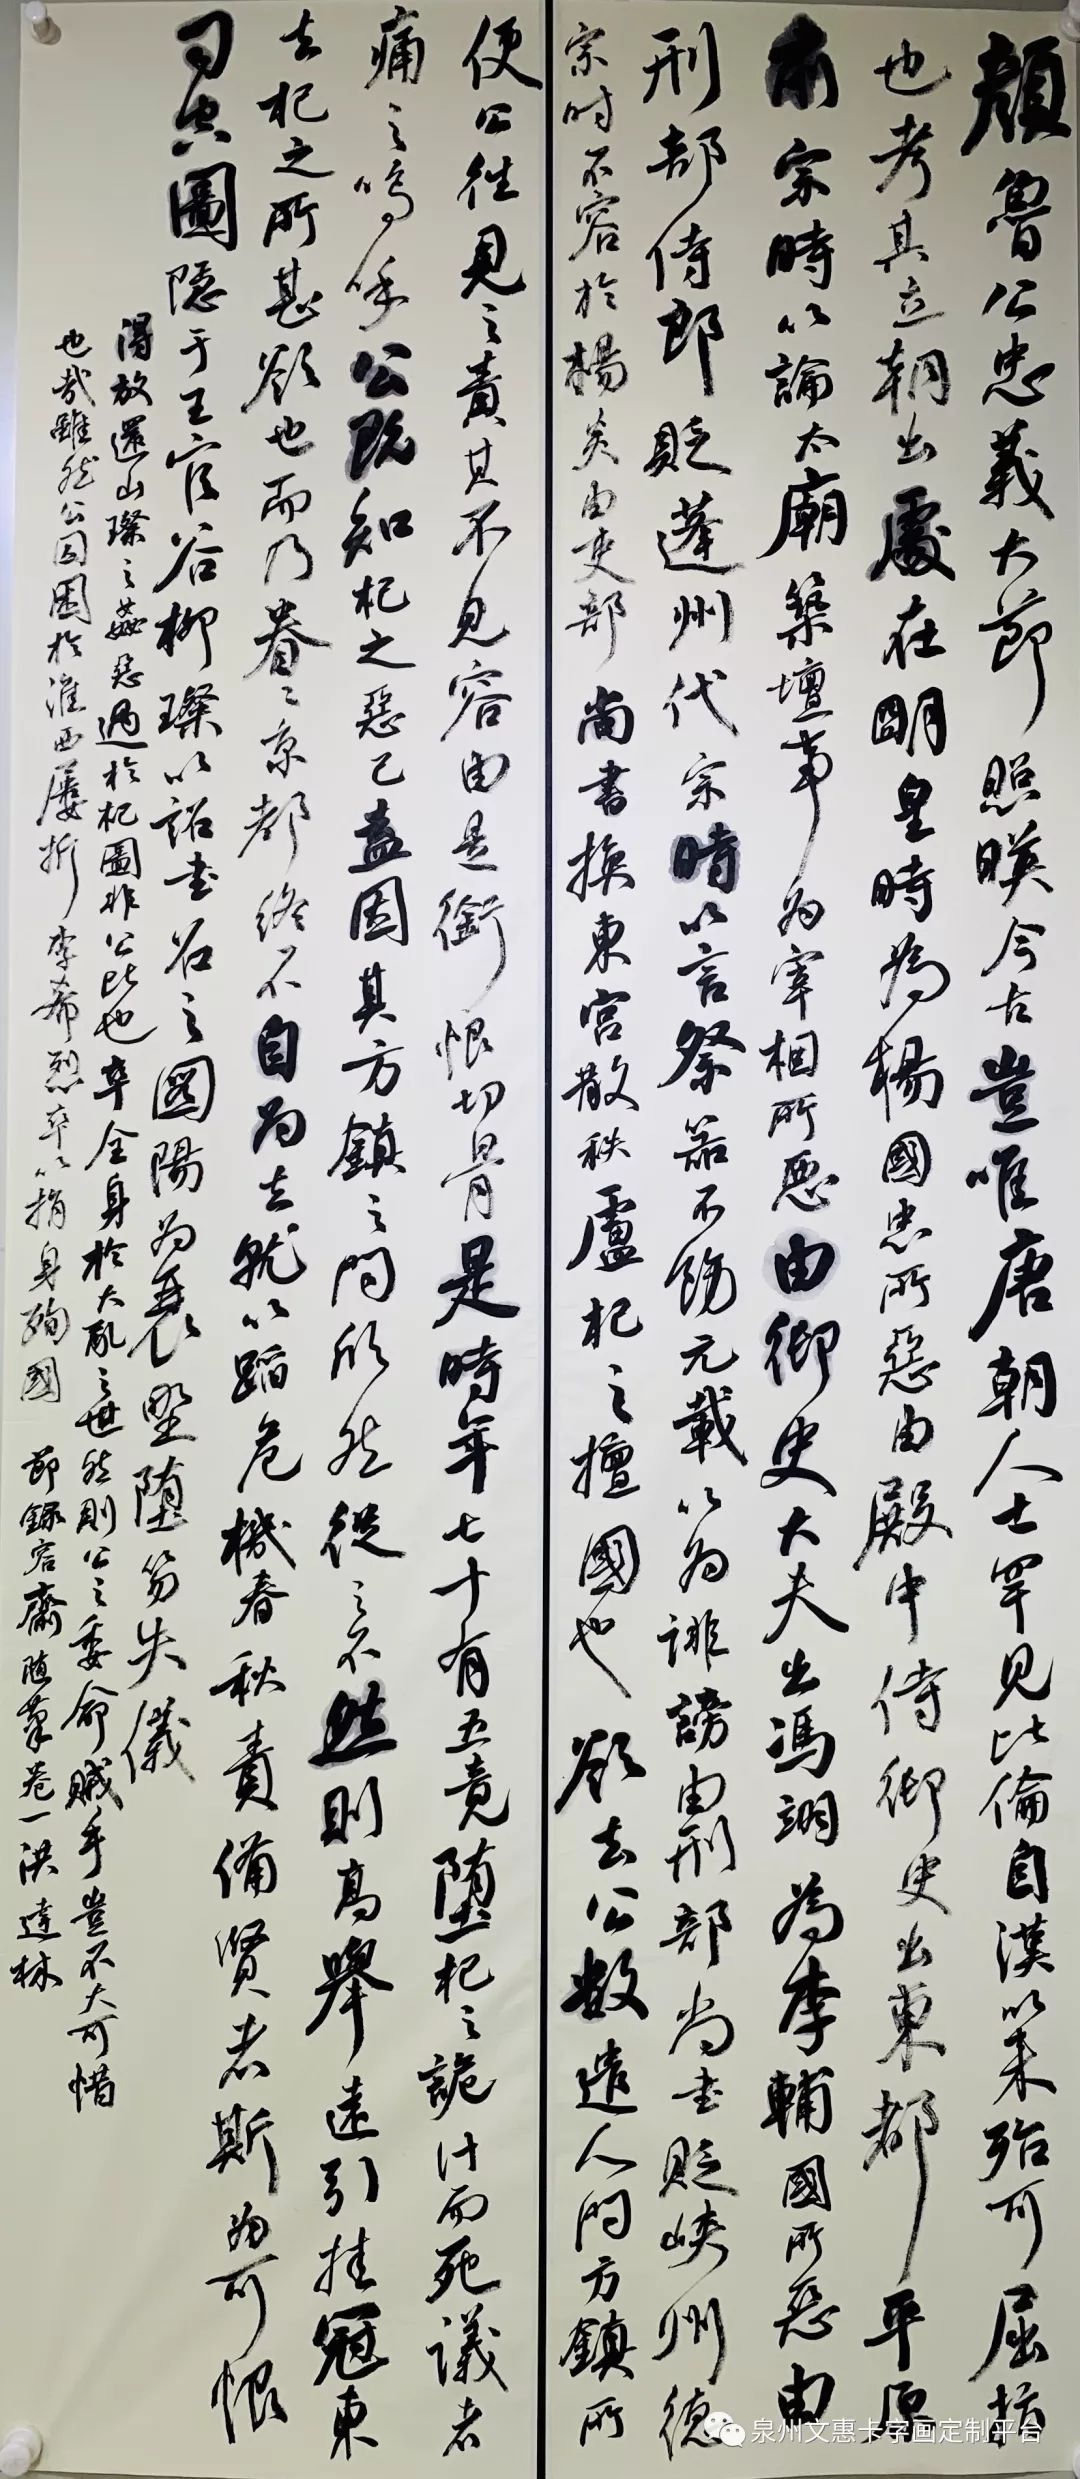 顏魯公忠義大節照映今古豈唯唐朝人士罕見比倫自漢以來殆可屈指
也考其立朝出處在明皇時為楊國忠所惡由殿中侍御史出東都平原
肅宗時以論太廟築壇事為宰相所惡由御史大夫出馮翊為李輔國所惡由
刑部侍郎貶蓬州代宗時以言祭器不飭元載以為誹謗由刑部尚書貶峽州德
宗時不容於楊炎由吏部尚書換東宮散秩盧杞之擅國也欲去公數遣人問方鎮所
便公往見之責其不見容由是銜恨切骨是時年七十有五竟墮杞之詭計而死議者
痛之嗚呼公既知杞之惡己盍因其方鎮之問欣然從之不然則高舉遠引掛冠東
去杞之所甚欲也而乃眷々京都終不自為去就以蹈危機春秋責備賢者斯為可恨
司空圖隱于王官谷柳璨以詔書召之圖陽為衰野墮笏失儀
得放還山璨之姦惡過於杞圖非公比也卒全身於大亂之世然則公之委命賊手豈不大可惜
也哉雖然公囚困於淮西屢折李希烈卒以捐身殉國 節錄容齋隨筆卷一洪達林
泉州文惠卡字画定制平台